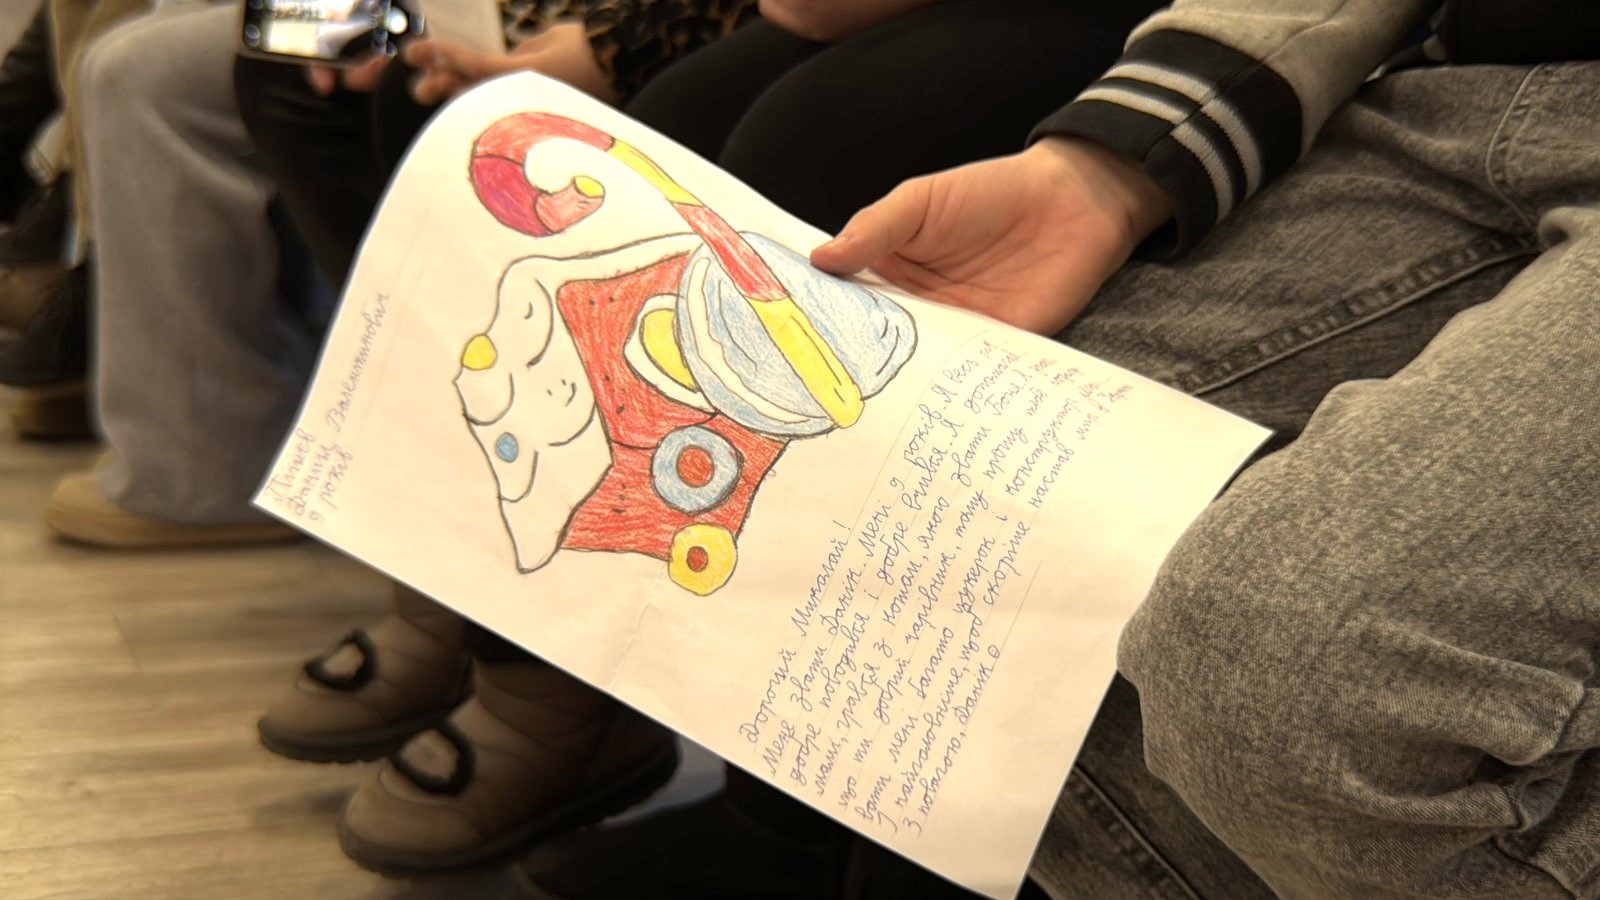 Данило Валентинович
9 років
Дорогий Миколай!
Мене звати Данік. Мені 9 років. Я весь рік
добре поводився і добре вчився. Я допомагав
мамі, грався з котом, якого звати Боня. Я знаю
що ти добрий чарівник, тому прошу тебе
мені багато цукерок і конструктор
І найголовніше, щоб скоріше настав мир в
З повагою, Данік